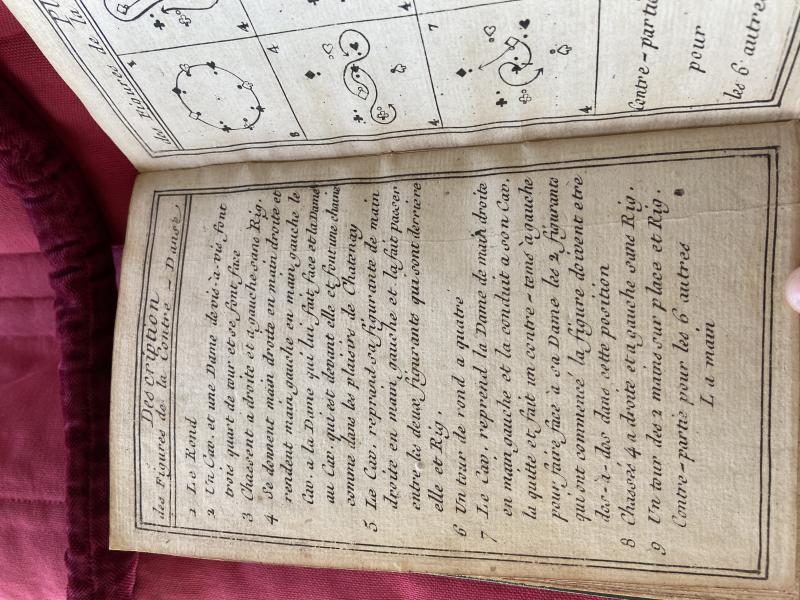 Description
des Figures de la Contre-Danse
1 Le Rond
2 Un Cav. et une Dame de vis-a-vis font
trois quart de tour et se font face
3 Chassent a droite et a gauche sans Rig.
4 Se donnent main droite en main droite et
rendent main gauche en main gauche le
Cav. a la Dame qui lui fait face et la Dame
au Cav. qui est devant elle et font une chaine
comme dans les plaisirs de Chatenay
5 Le Cav. reprend sa figurante de main
droite en main gauche et la fait passer
entre les deux figurants qui sont derriere
elle et Rig.
6 Un tour de rond a quatre
7 Le Cav. reprend la Dame de main droite
en main gauche et la conduit a son Cav.
la quitte et fait un contre-tems a gauche
pour faire face a sa Dame les 2 figurants
qui ont commencé la figure doivent etre
dos-a-dos dans cette position
8 Chassés 4 a droite et a gauche sans Rig.
9 Un tour des 2 mains sur place et Rig.
Contre-partie pour les 6 autres
La main
des Figures de la
1
8
4
4
4
4
7
4
Contre-partie
pour
les 6 autres